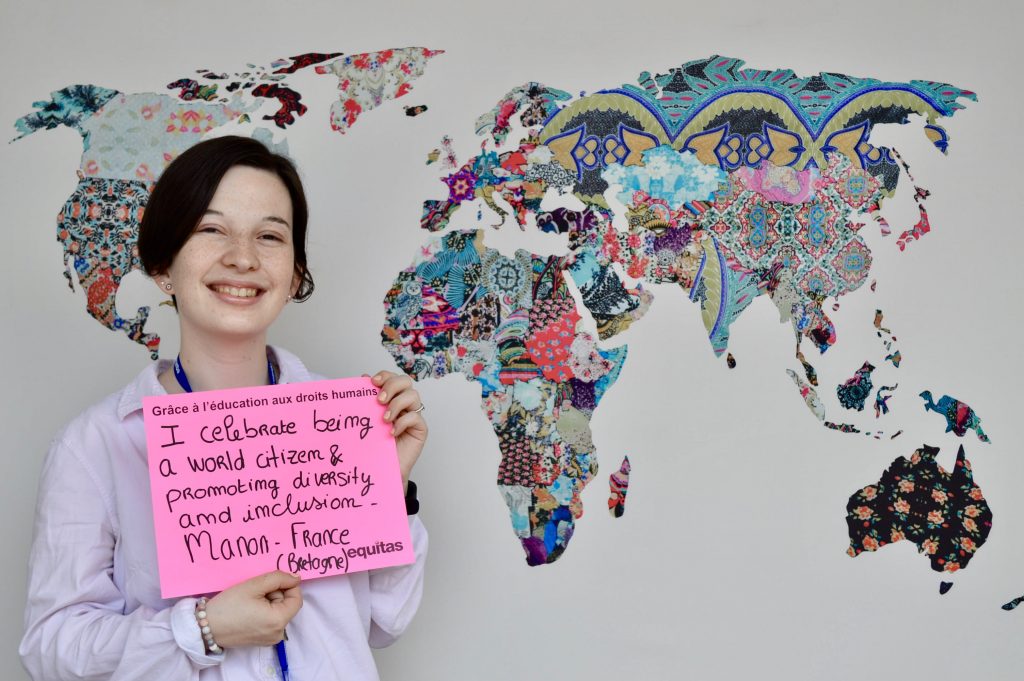 Grâce à l'éducation aux droits humains
I celebrate being
a world citizen &
promoting diversity
and inclusion -
Manon - France
(Bretagne)
equitas